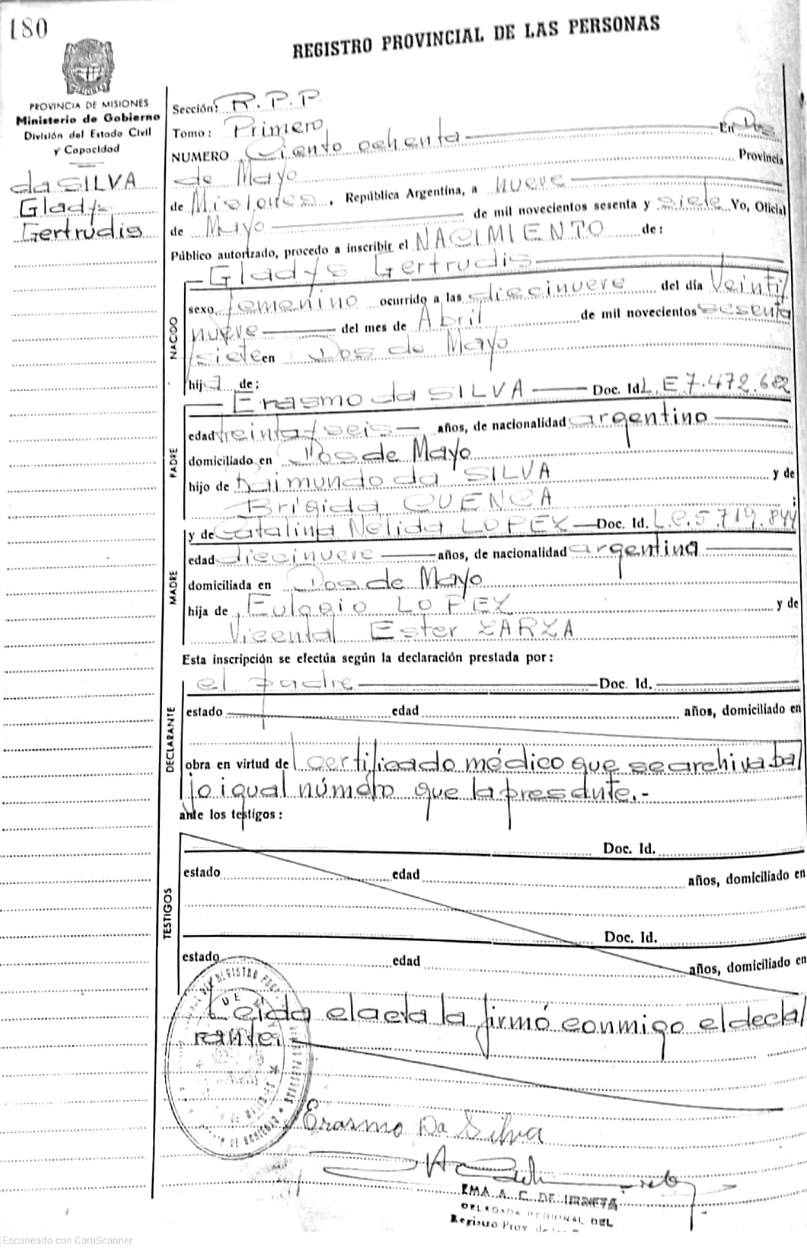 180
REGISTRO PROVINCIAL DE LAS PERSONAS
PROVINCIA DE MISIONES
Ministerio de Gobierno
División del Estado Civil
y Capacidad
da SILVA
Gladys
Gertrudis
Sección: R.P.P
Tomo: Primero
NUMERO Ciento ochenta En Dos
de Mayo Provincia
de Misiones, República Argentina, a nueve
de Mayo de mil novecientos sesenta y siete Yo, Oficial
Público autorizado, procedo a inscribir el NACIMIENTO de:
NACIDO
Gladys Gertrudis
sexo femenino ocurrido a las diecinueve del día Veinti
nueve del mes de Abril de mil novecientos sesenta
siete en Dos de Mayo
hija de:
PADRE
Erasmo da SILVA Doc. Id. L.E 7.472.682
edad treintaiseis años, de nacionalidad argentino
domiciliado en Dos de Mayo
hijo de Raimundo da SILVA y de
Brígida CUENCA ;
MADRE
y de Catalina Nélida LOPEZ Doc. Id. L.C.5.719.844
edad diecinueve años, de nacionalidad argentina
domiciliada en Dos de Mayo
hija de Eulogio LOPEZ y de
Ester ZARZA
Esta inscripción se efectúa según la declaración prestada por:
DECLARANTE
el padre Doc. Id.
estado edad años, domiciliado en
obra en virtud de certificado médico que se archiva ba
jo igual número que la presente.-
ante los testigos:
TESTIGOS
Doc. Id.
estado edad años, domiciliado en
Doc. Id.
estado edad años, domiciliado en
Leída el acta la firmó conmigo el decla
rante.
Erasmo Da Silva
EMA A. C. DE URRETA
DELEGADA REGIONAL DEL
Registro Prov. de
Escaneado con CamScanner